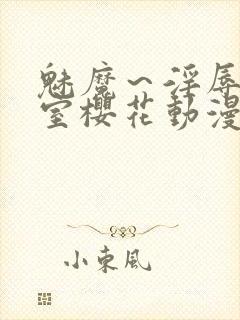 魅魔～淫辱
室櫻花動漫
小東風